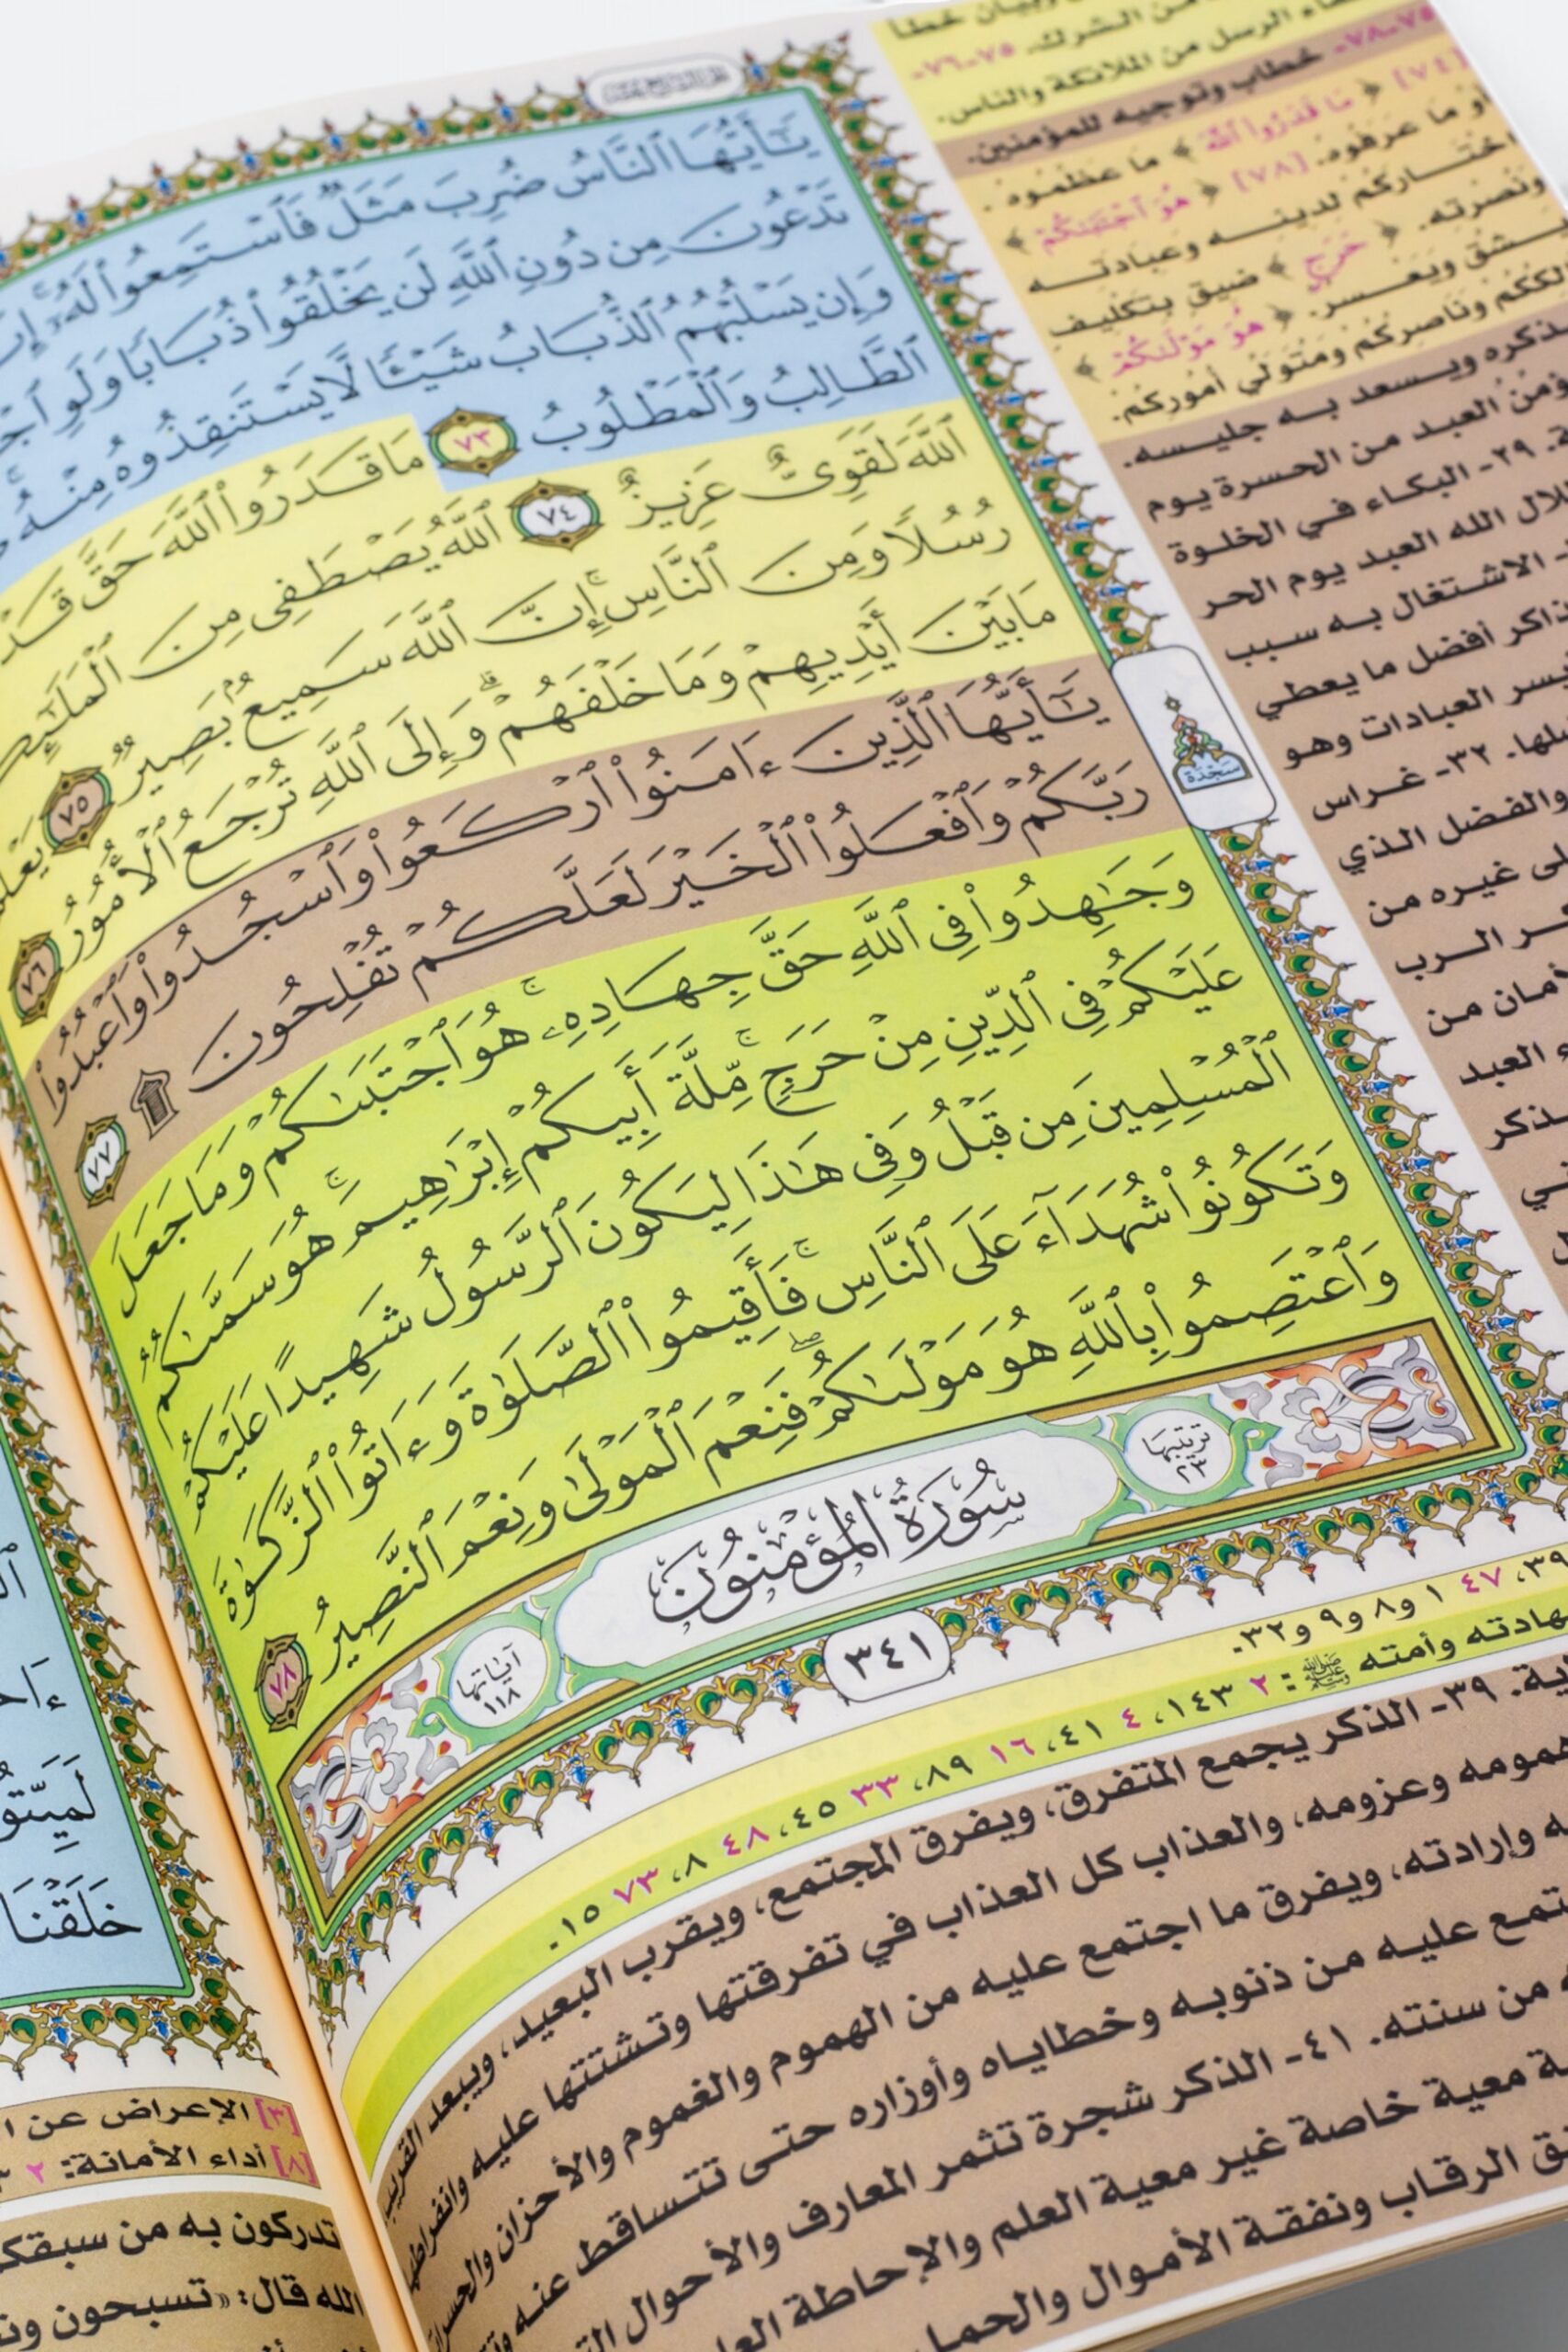 يَٰٓأَيُّهَا ٱلنَّاسُ ضُرِبَ مَثَلٌ فَٱسْتَمِعُوا۟ لَهُۥٓ ۚ إِ
تَدْعُونَ مِن دُونِ ٱللَّهِ لَن يَخْلُقُوا۟ ذُبَابًا وَلَوِ ٱجْ
وَإِن يَسْلُبْهُمُ ٱلذُّبَابُ شَيْـًٔا لَّا يَسْتَنقِذُوهُ مِنْهُ ۚ
ٱلطَّالِبُ وَٱلْمَطْلُوبُ ٧٣ مَا قَدَرُوا۟ ٱللَّهَ حَقَّ قَدْ
ٱللَّهَ لَقَوِىٌّ عَزِيزٌ ٧٤ ٱللَّهُ يَصْطَفِى مِنَ ٱلْمَلَٰٓئِ
رُسُلًا وَمِنَ ٱلنَّاسِ ۚ إِنَّ ٱللَّهَ سَمِيعٌۢ بَصِيرٌ ٧٥ يَعْلَ
مَا بَيْنَ أَيْدِيهِمْ وَمَا خَلْفَهُمْ ۗ وَإِلَى ٱللَّهِ تُرْجَعُ ٱلْأُمُورُ ٧٦
يَٰٓأَيُّهَا ٱلَّذِينَ ءَامَنُوا۟ ٱرْكَعُوا۟ وَٱسْجُدُوا۟ وَٱعْبُدُوا۟
رَبَّكُمْ وَٱفْعَلُوا۟ ٱلْخَيْرَ لَعَلَّكُمْ تُفْلِحُونَ ۩ ٧٧
وَجَٰهِدُوا۟ فِى ٱللَّهِ حَقَّ جِهَادِهِۦ ۚ هُوَ ٱجْتَبَىٰكُمْ وَمَا جَعَلَ
عَلَيْكُمْ فِى ٱلدِّينِ مِنْ حَرَجٍ ۚ مِّلَّةَ أَبِيكُمْ إِبْرَٰهِيمَ ۚ هُوَ سَمَّىٰكُمُ
ٱلْمُسْلِمِينَ مِن قَبْلُ وَفِى هَٰذَا لِيَكُونَ ٱلرَّسُولُ شَهِيدًا عَلَيْكُمْ
وَتَكُونُوا۟ شُهَدَآءَ عَلَى ٱلنَّاسِ ۚ فَأَقِيمُوا۟ ٱلصَّلَوٰةَ وَءَاتُوا۟ ٱلزَّكَوٰةَ
وَٱعْتَصِمُوا۟ بِٱللَّهِ هُوَ مَوْلَىٰكُمْ ۖ فَنِعْمَ ٱلْمَوْلَىٰ وَنِعْمَ ٱلنَّصِيرُ ٧٨
سَجْدَة
ترتيبها ٢٣
سُورَةُ المُؤْمِنُونَ
آياتها ١١٨
٣٤١
من الشرك. ٧٥-٧٦-
الرسل من الملائكة والناس.
٧٨-٧٧- خطاب وتوجيه للمؤمنين.
[٧٤] ﴿ مَا قَدَرُوا۟ ٱللَّهَ ﴾ ما عظموه.
أو ما عرفوه. [٧٨] ﴿ هُوَ ٱجْتَبَىٰكُمْ ﴾
اختاركم لدينه وعبادته
ونصرته. ﴿ حَرَجٍ ﴾ ضيق بتكليف
يشق ويعسر. ﴿ هُوَ مَوْلَىٰكُمْ ﴾
وناصركم ومتولي أموركم.
ويسعد به جليسه.
العبد من الحسرة يوم
٢٩- البكاء في الخلوة
الله العبد يوم الحر
الاشتغال به سبب
أفضل ما يعطي
العبادات وهو
٣٢- غراس
والفضل الذي
غيره من
الرب
من
العبد
٣٩، ٤٧ ١ و٨ و٩ و٣٢.
وأمته ﷺ: ٢ ١٤٣، ٤ ٤١، ١٦ ٨٩، ٣٣ ٤٥، ٤٨ ٨، ٧٣ ١٥.
٣٩- الذكر يجمع المتفرق، ويفرق المجتمع، ويقرب البعيد، ويبعد القريب
وعزومه، والعذاب كل العذاب في تفرقتها وتشتتها عليه وانفراطها
وإرادته، ويفرق ما اجتمع عليه من الهموم والغموم والأحزان والحسرات
عليه من ذنوبه وخطاياه وأوزاره حتى تتساقط عنه
من سنته. ٤١- الذكر شجرة تثمر المعارف والأحوال
معية خاصة غير معية العلم والإحاطة
الرقاب ونفقة الأموال والحمل
خَلَقْنَا
[٣] الإعراض عن
[٨] أداء الأمانة: ٢
تدركون به من سبقكم
الله قال: «تسبحون